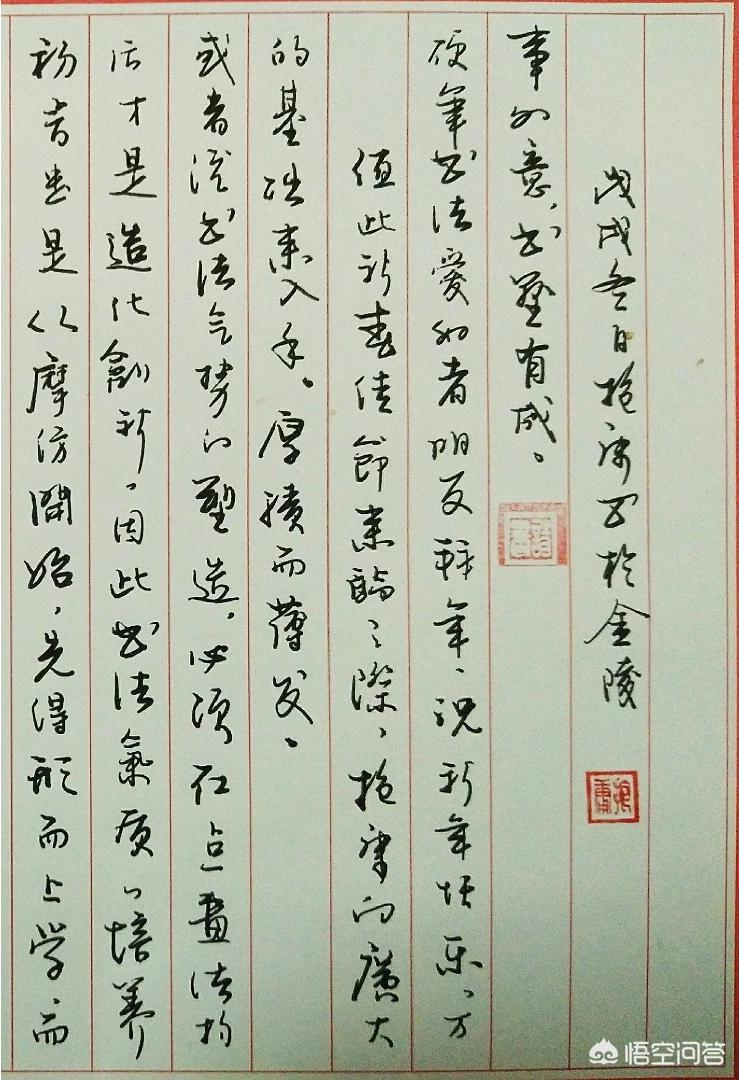 初者是从摩仿開始，先得形而上学，而
后才是造化創新，因此书法氣质的培养
或者说书法气势的塑造，必须在点畫结构
的基础来入手。厚積而薄发。
值此新春佳節来臨之際，抱庸向廣大
硬笔书法爱好者朋友拜年，祝新年快乐，万
事如意，书有成。
戊戌冬日抱庸书於金陵
悟空问答